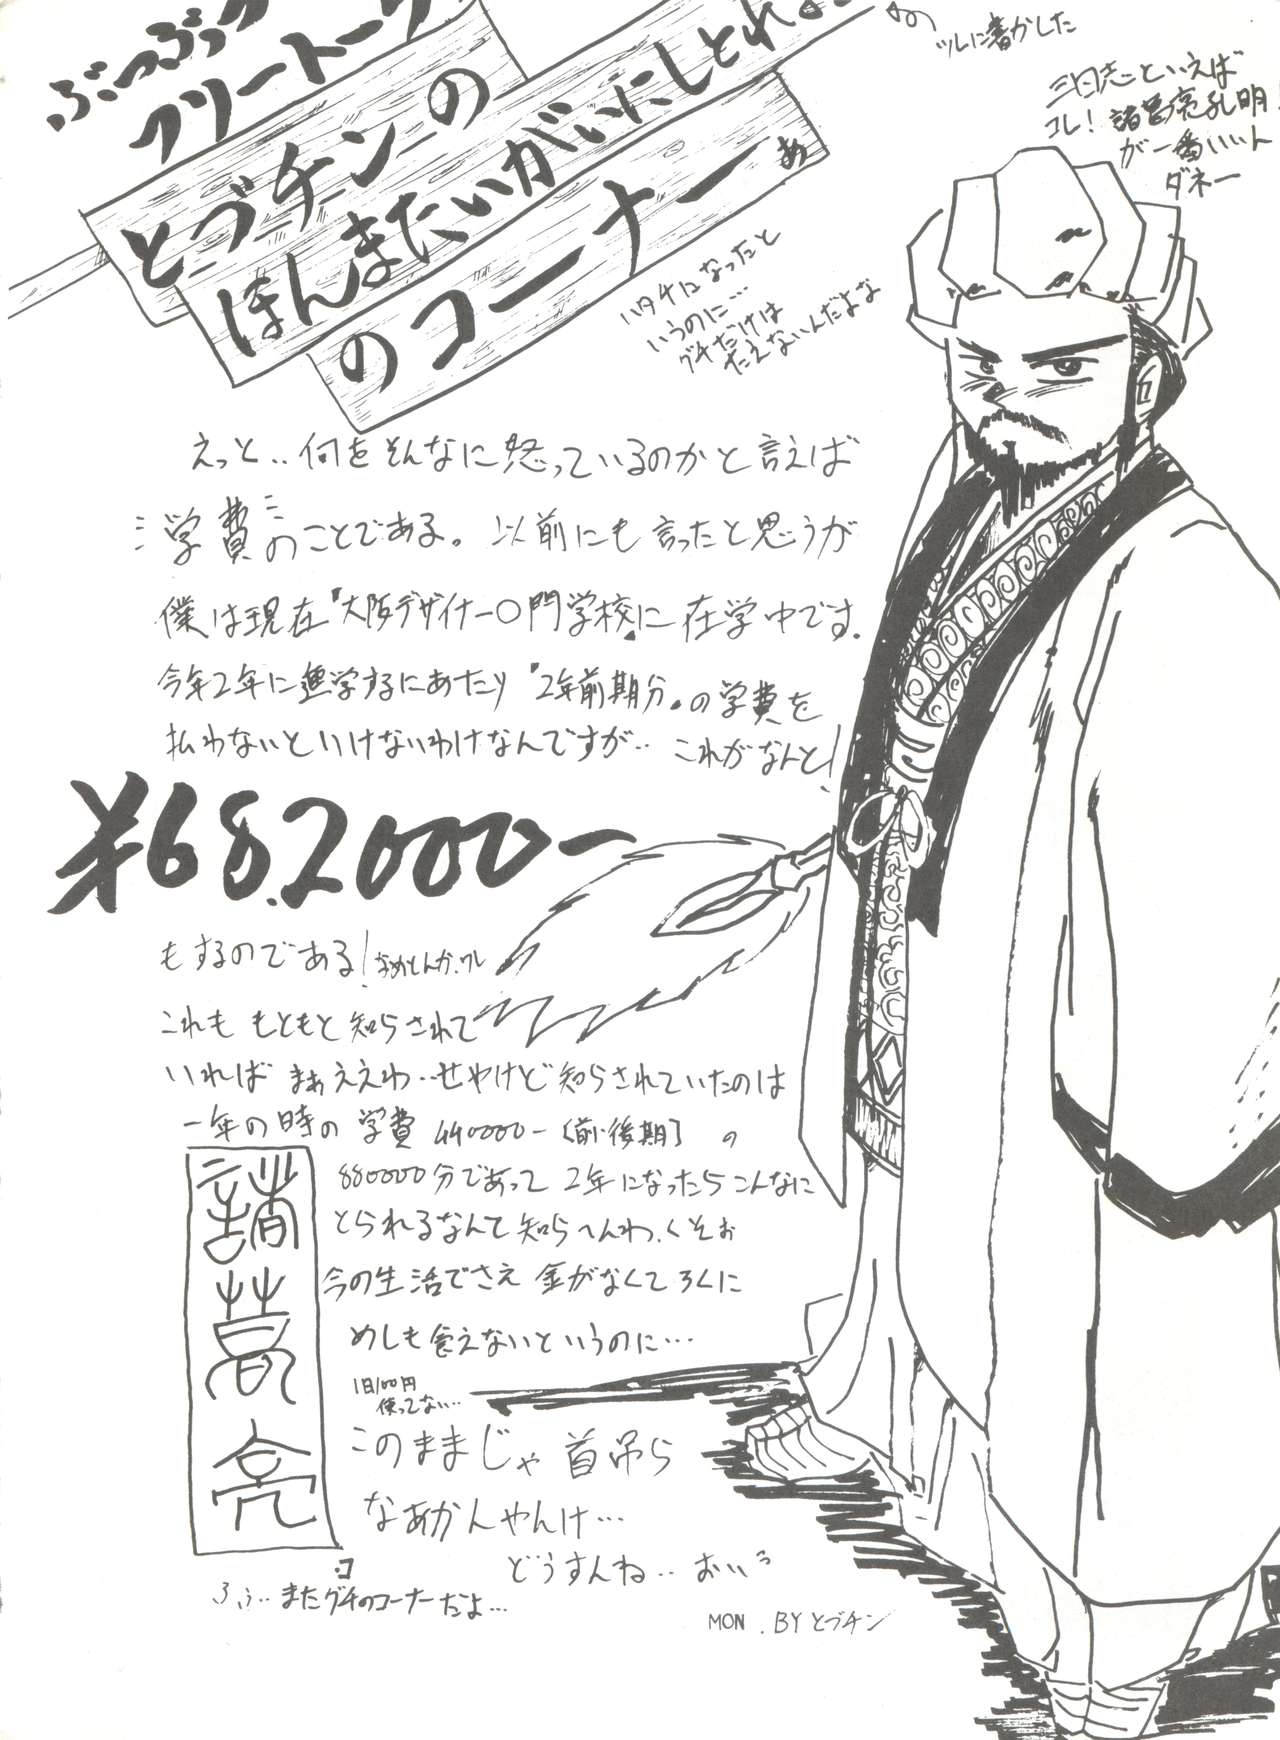 ぶつぶつ
フリートーク
とブチンの
ほんまたいがいにしとれよ
のコーナーぁ
ツレに書かした
三国志といえば
コレ!諸葛亮孔明!
が一番いいん
ダネー
ハタチになったと
いうのに…
グチだけは
たえないんだよな
えっと‥何をそんなに怒っているのかと言えば
学費のことである。以前にも言ったと思うが
僕は現在『大阪デザイナー〇門学校』に在学中です。
今年2年に進学するにあたり『2年前期分』の学費を
払わないといけないわけなんですが‥これがなんと!
¥682000-
もするのである!なめとんか、ワレ
これももともと知らされて
いればまぁええわ‥せやけど知らされていたのは
一年の時の学費440000-〔前・後期〕の
880000分であって2年になったらこんなに
とられるなんて知らへんわ、くそぉ
今の生活でさえ金がなくてろくに
めしも食えないというのに…
1日100円
使ってない…
このままじゃ首吊ら
なあかんやんけ…
どうすんね‥おいっ
諸葛亮
ふふ‥またグチのコーナーだよ…
MON.BYとブチン